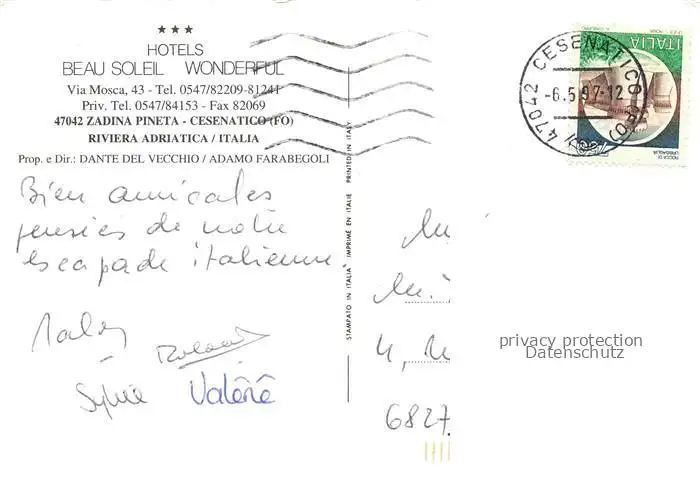 HOTELS
BEAU SOLEIL WONDERFUL
Via Mosca, 43 - Tel. 0547/82209-81241
Priv. Tel. 0547/84153 - Fax 82069
47042 ZADINA PINETA - CESENATICO (FO)
RIVIERA ADRIATICA / ITALIA
Prop. e Dir.: DANTE DEL VECCHIO / ADAMO FARABEGOLI
Bien amicales
pensées de notre
escapade italienne
Roland
Sylvie Valérie
STAMPATO IN ITALIA IMPRIMÉ EN ITALIE PRINTED IN ITALY
47042 CESENATICO (FO)
-6.5.97-12
ITALIA
ROCCA DI
URBISAGLIA
4,
6827
privacy protection
Datenschutz